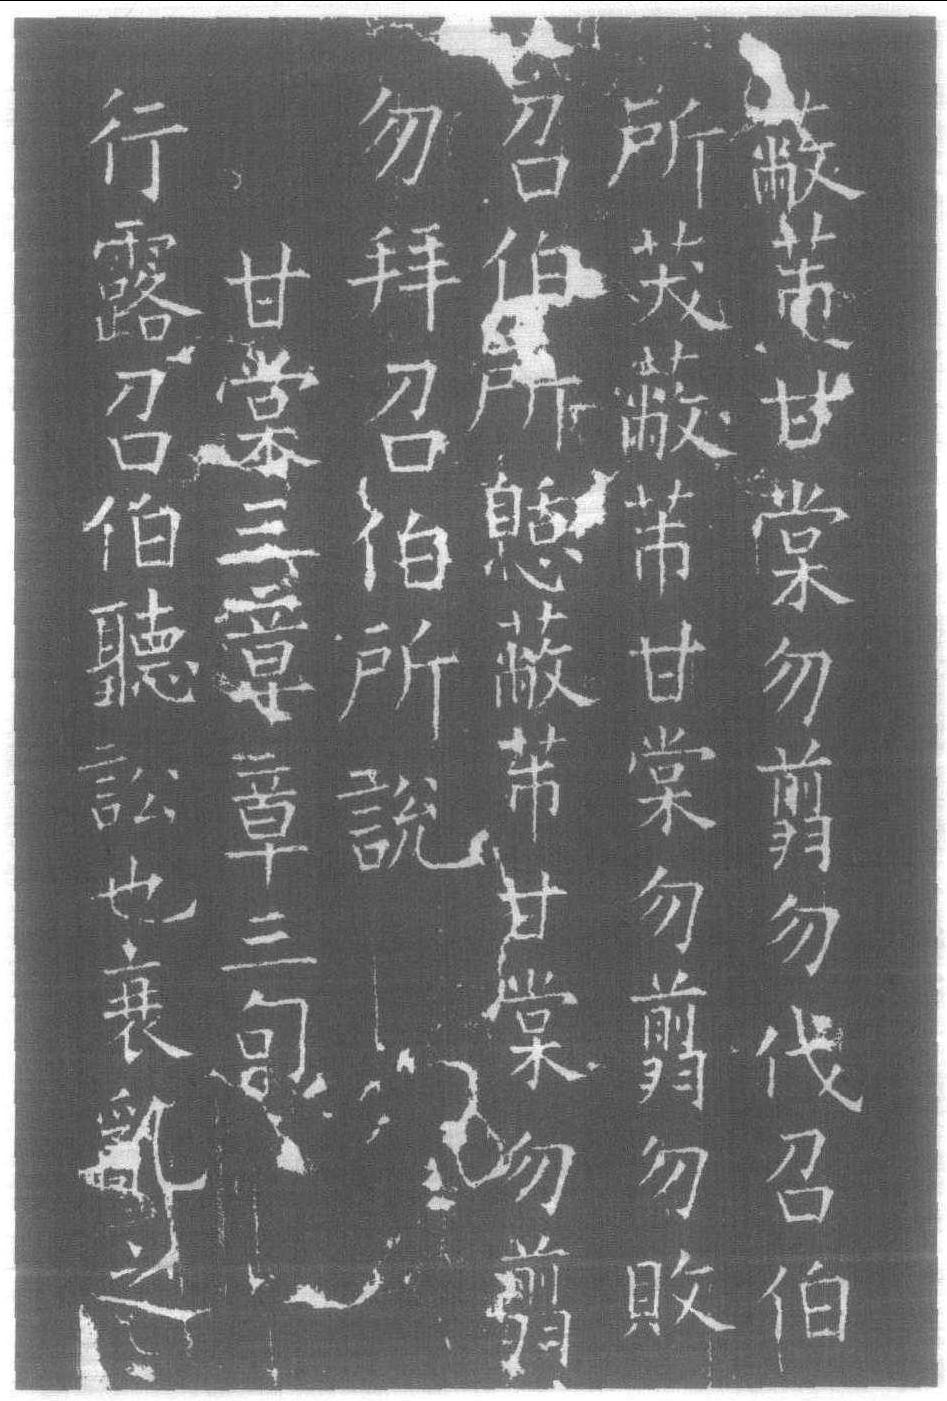 蔽芾甘棠勿翦勿伐召伯
所茇蔽芾甘棠勿翦勿敗
召伯所憩蔽芾甘棠勿翦
勿拜召伯所說
甘棠三章章三句
行露召伯聽訟也衰亂之